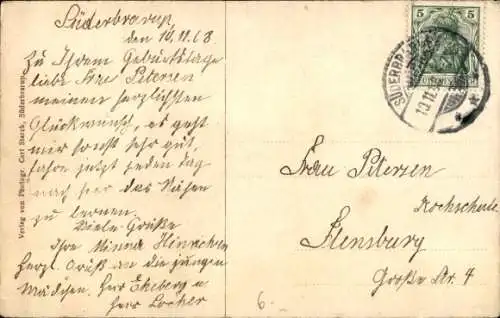 Süderbrarup,
den 10.11.08.
Zu Ihrem Geburtstage
liebe Frau Petersen
meinen herzlichsten
Glückwunsch, es geht
mir sonst sehr gut,
fahre jetzt jeden Tag
nach hier das Nähen
zu lernen.
Viele Grüße
Ihre Minna Hinrichsen
Herzl. Grüß an die jungen
Mädchen, Herr Ekeberg u
Herr Locher
Verlag von Photogr. Carl Starck, Süderbrarup.
5 5
SÜDERBRARUP
10.11.
Frau Petersen
Kochschule
Flensburg
Große Str. 4
6.-